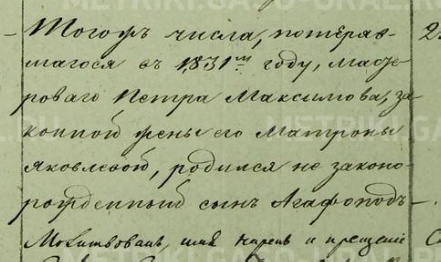 – Тогожъ числа, потеряв- 2
шагося съ 1831го году, масте-
роваго Петра Максимова, за-
конной жены его Матроны
Яковлевой, родился не законо-
рожденный сынъ Агафоподъ –
Молитвовалъ, имя нарекъ и крещеніе